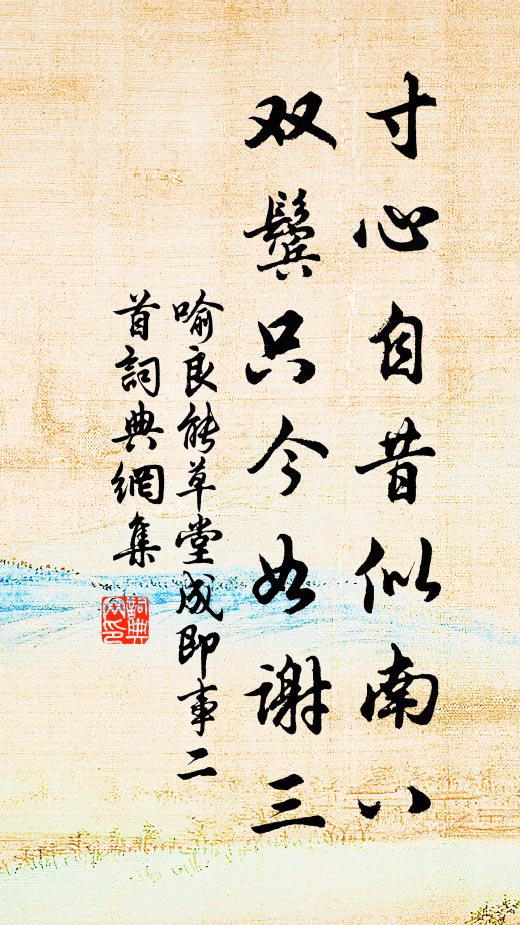 寸心自昔似南八
双鬓只今如谢三
喻良能草堂成即事二
首詞典網集
詞典